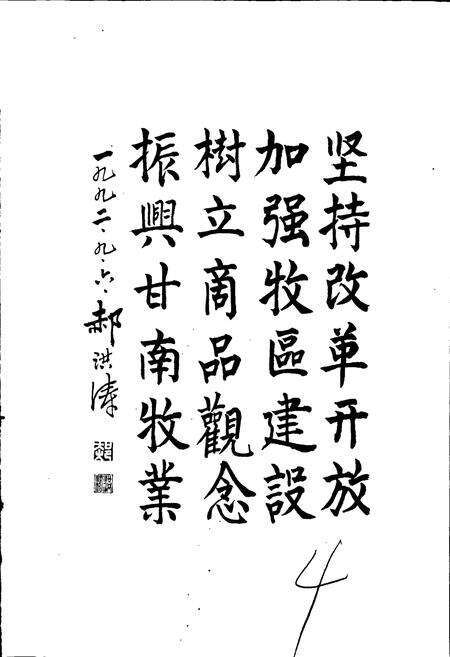 坚持改革开放
加强牧區建設
樹立商品觀念
振興甘南牧業
一九九二·九·六·郝洪涛
4